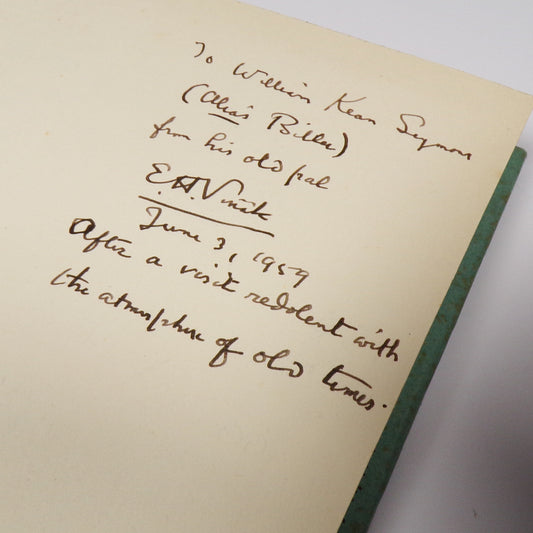 To William Kean Seymour
(Alias Billee)
from his old pal
E.H.Visiak
June 3, 1959
After a visit redolent with
the atmosphere of old times.